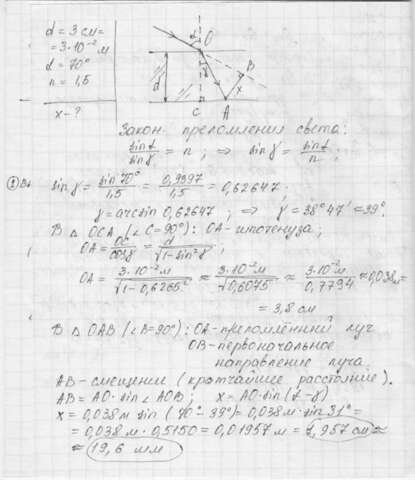 d = 3 см =
= 3·10⁻² м
α = 70°
n = 1,5
x - ?
α
O
d
B
x
C
A
Закон преломления света:
sinα/sinγ = n ; ⇒ sinγ = sinα/n ;
sinγ = sin70°/1,5 = 0,9397/1,5 = 0,62647.
γ = arcsin 0,62647 ; ⇒ γ = 38°47' ≈ 39°.
В Δ OCA (∠C=90°): OA - гипотенуза ;
OA = OC/cosγ = d/√1-sin²γ ;
OA = 3·10⁻² м/√1-0,6265² ≈ 3·10⁻² м/√0,6075 ≈ 3·10⁻² м/0,7794 ≈ 0,038 м =
= 3,8 см
В Δ OAB (∠B=90°): OA - преломлённый луч
OB - первоначальное
направление луча.
AB - смещение (кратчайшее расстояние).
AB = AO·sin∠AOB ; x = AO·sin(α-γ)
x = 0,038 м sin (70°-39°) = 0,038 м·sin31° =
= 0,038 м · 0,5150 = 0,01957 м = 1,957 см ≈
≈ 19,6 мм